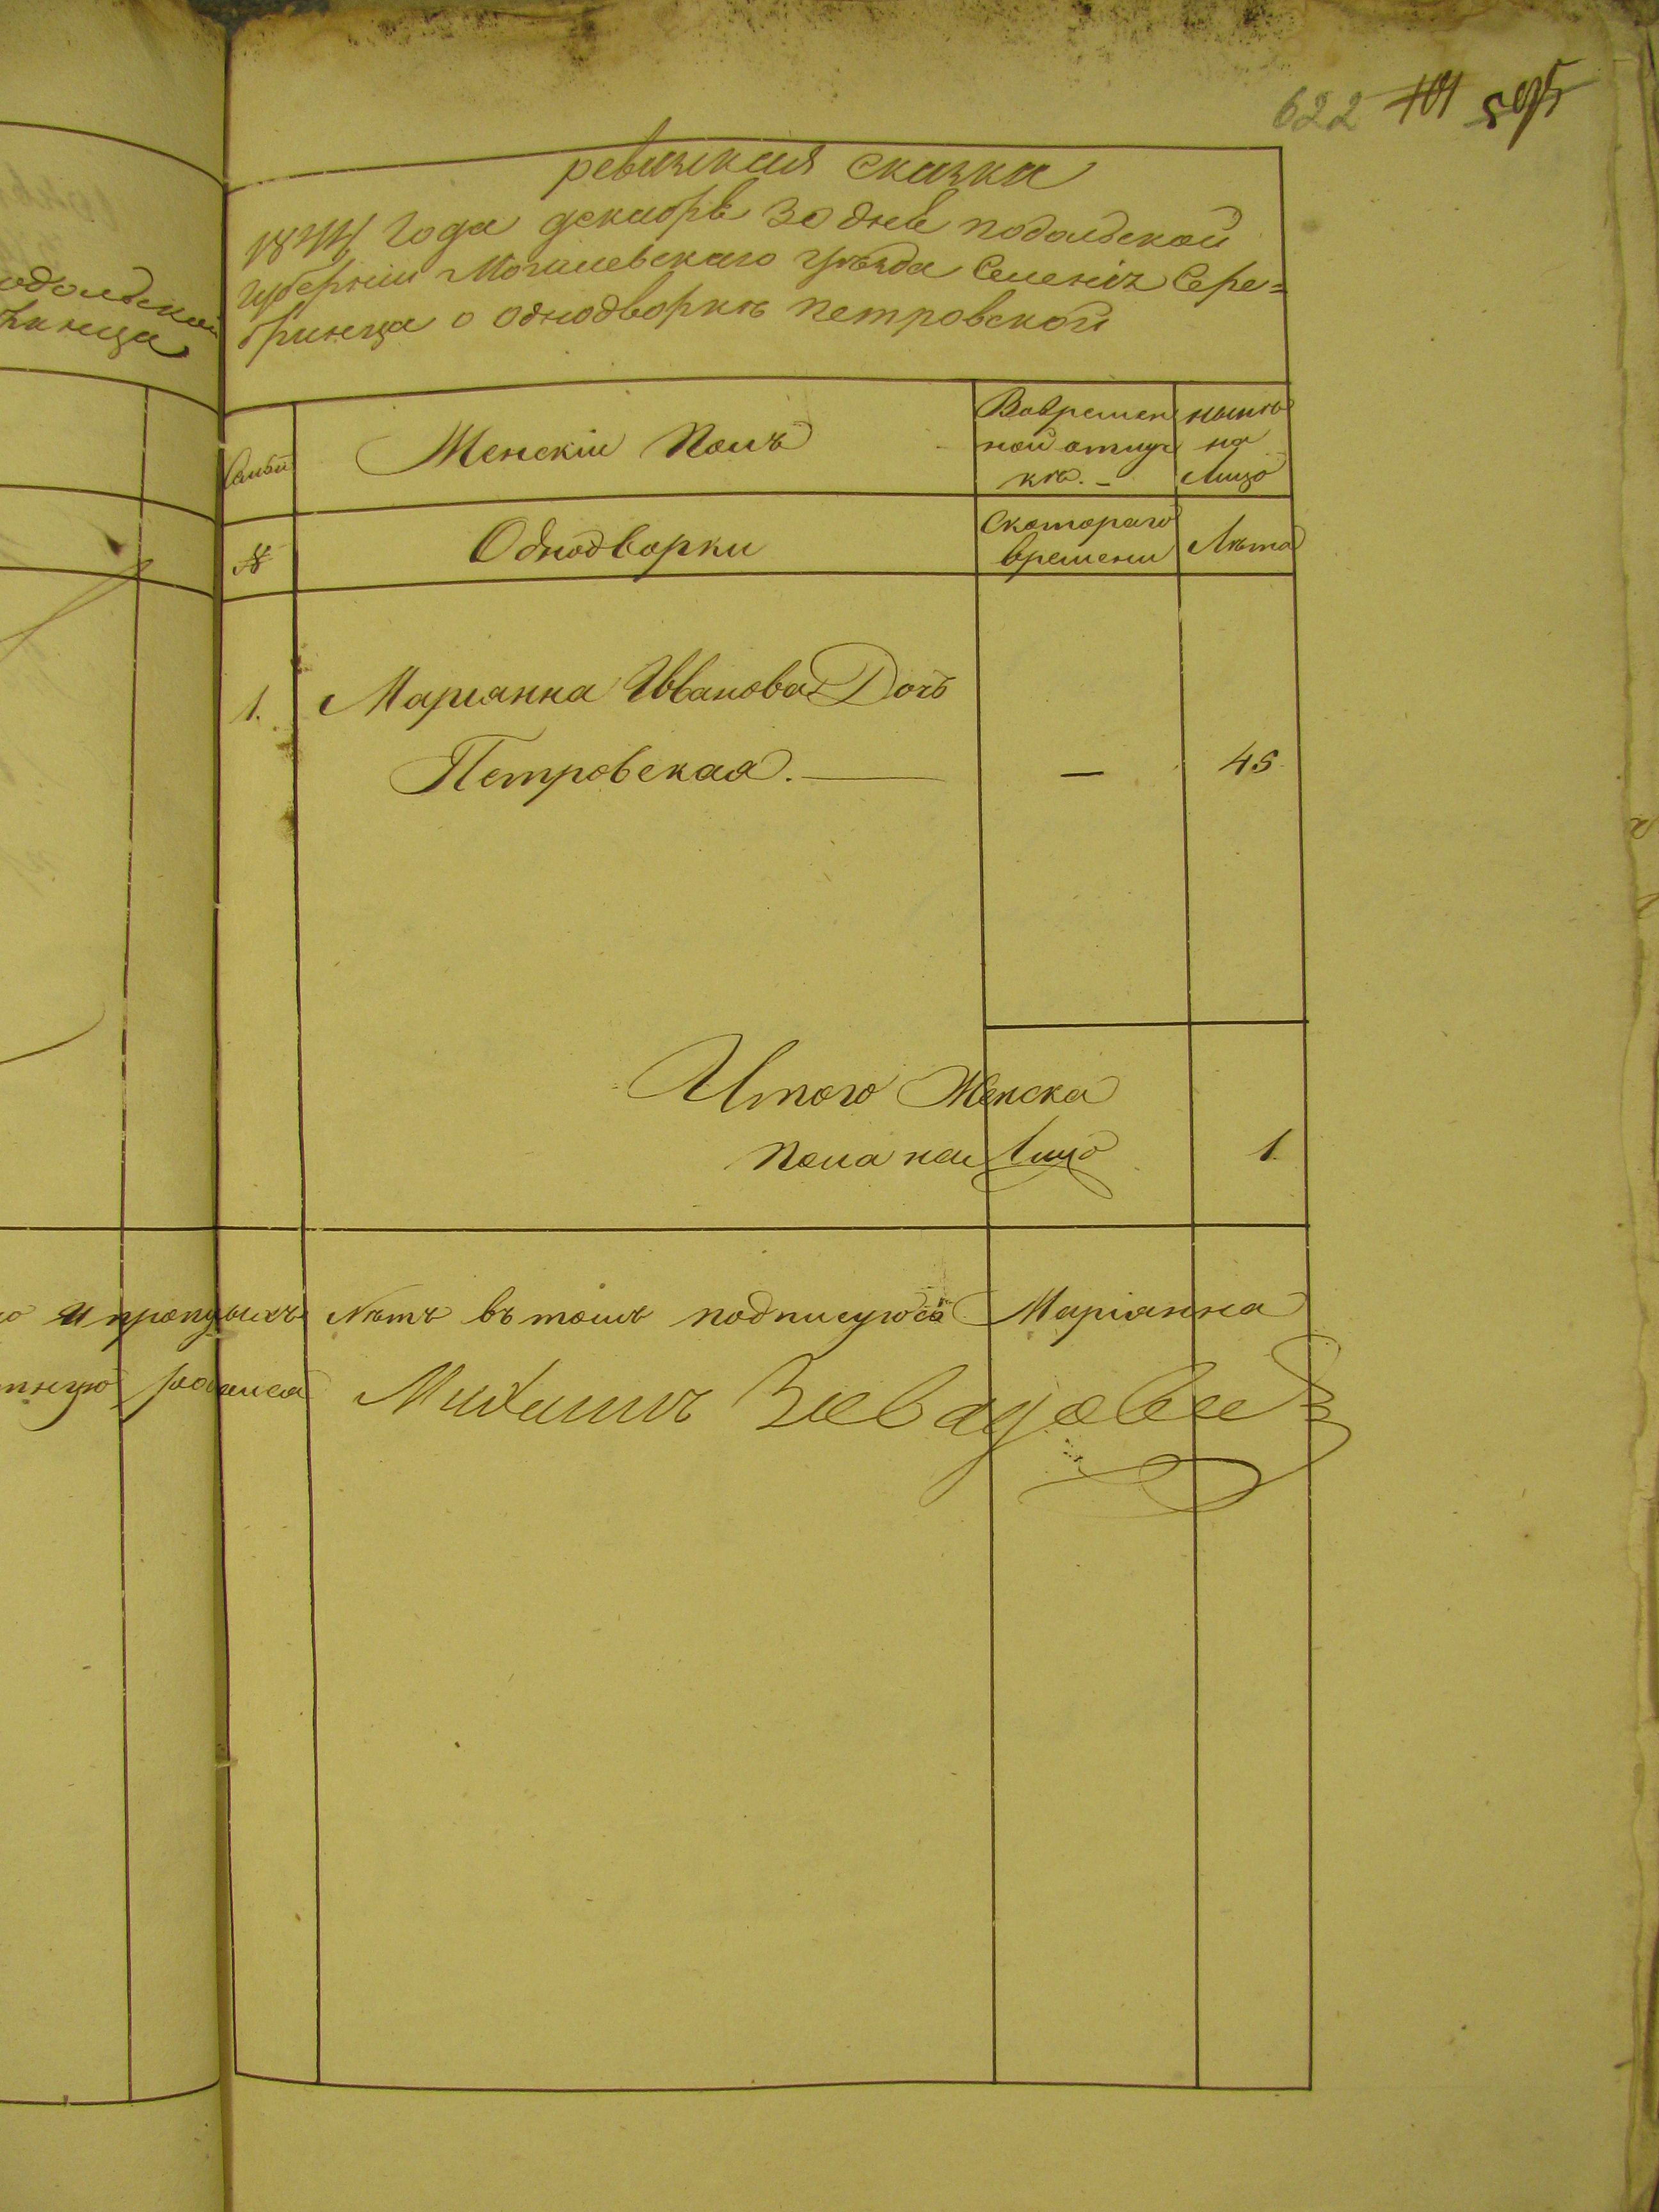 622 701 595
ревизкая сказка
года декабря 30 дня подольской
губернии Могилевскаго уѣзда Селенія Сере=
бринца о однодворкѣ петровской
одольской
Семьи
Женскій Полъ
Вовремен
ной отлуч
кѣ. –
нынѣ
на
Лицо
№
Однодворки
Скотораго
времени
Лѣта
1. Маріанна Иванова Дочь
Петровская. — — 45
Итого Женска
пола на Лицо 1.
и пропущихъ Нѣтъ въ томъ подписуюсь Маріанна